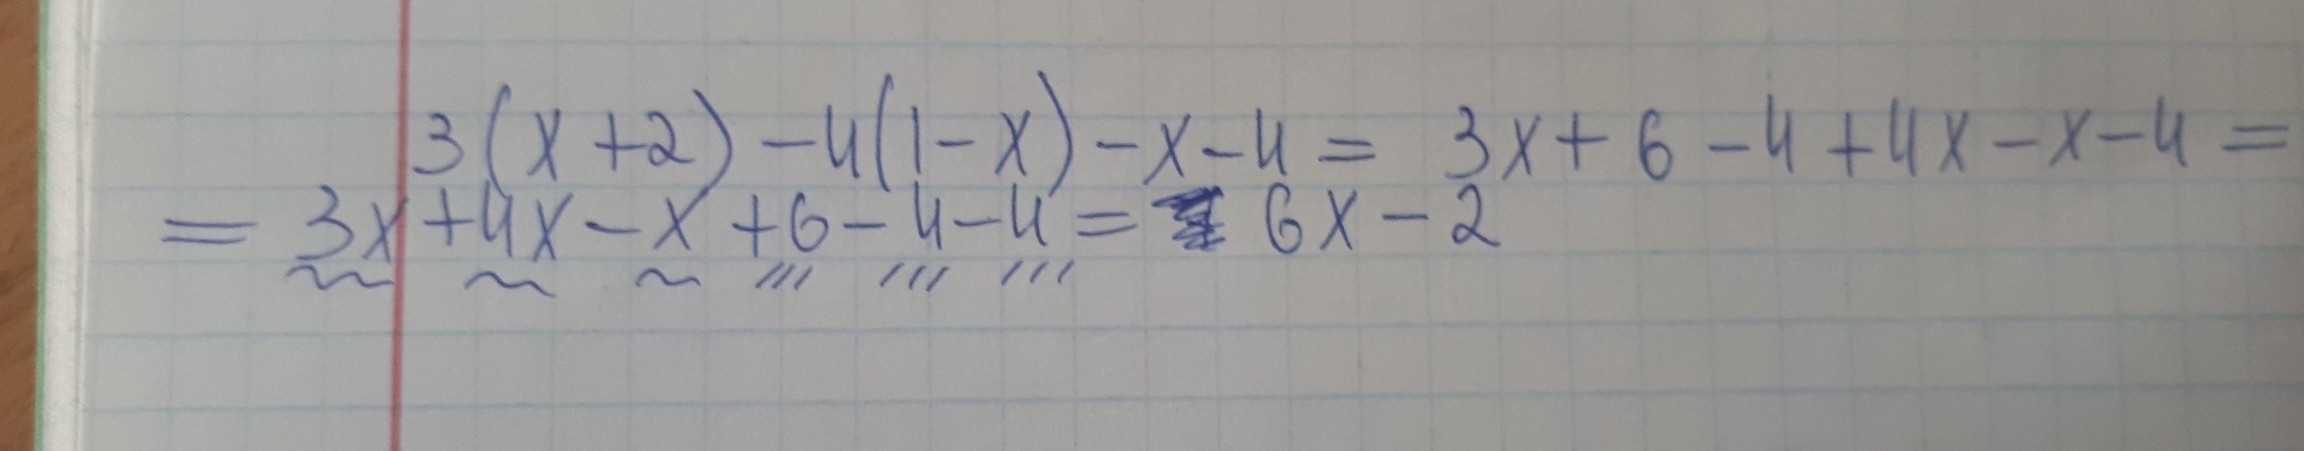 3(x+2)-4(1-x)-x-4= 3x+6-4+4x-x-4=
=3x+4x-x+6-4-4= 6x-2